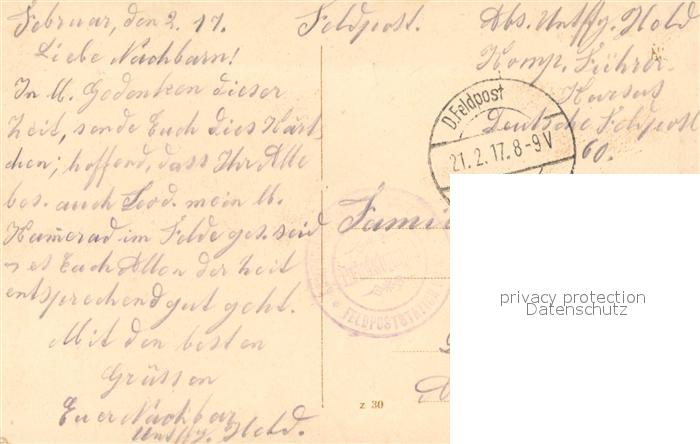 Februar, den 2. 17.
Liebe Nachbarn!
In l. Gedenken dieser
Zeit, sende Euch dies Kärt-
chen; hoffend, dass Ihr Alle
bes. auch Leod. mein l.
Kamerad im Felde ges. seid
es Euch Allen der Zeit
entsprechend gut geht.
Mit den besten
Grüssen
Euer Nachbar
Untffz. Hold.
Feldpost.
Abs. Untffz. Hold
Komp. Führer-
Kursus
Deutsche Feldpost
60.
D. Feldpost
21. 2. 17. 8-9 V
Famil
FELDPOSTSTATION
z 30
privacy protection
Datenschutz